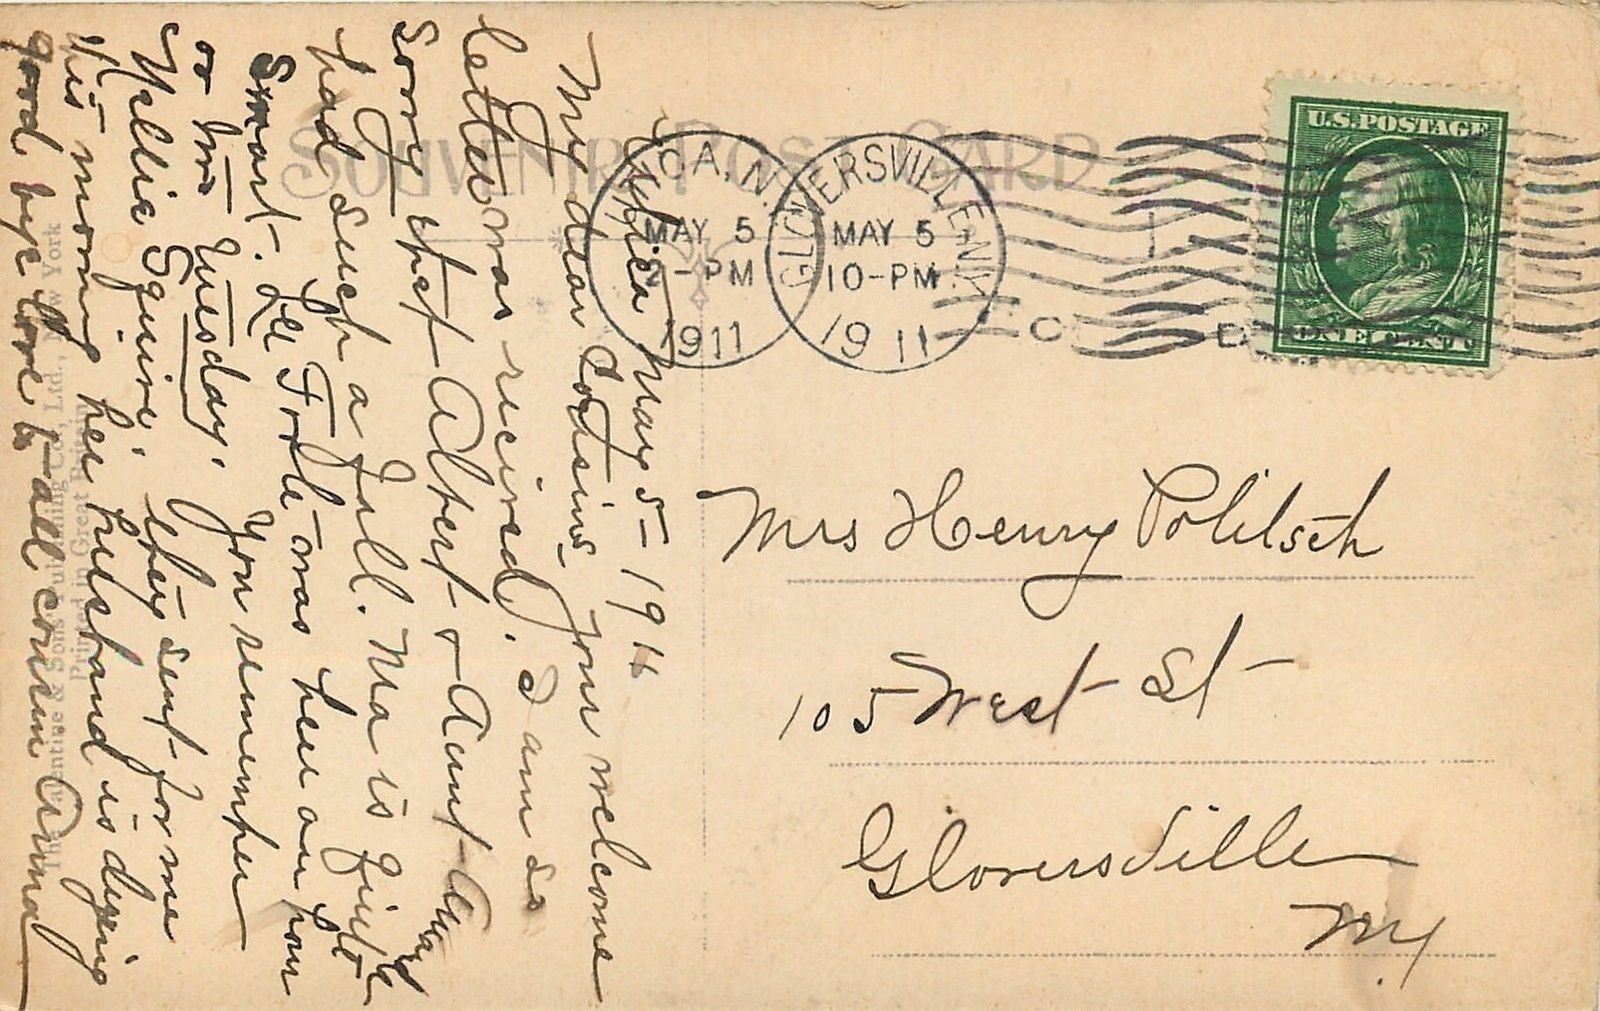 SOUVENIR POST CARD
UTICA, N.
MAY 5
2-PM
1911
GLOVERSVILLE N.Y.
MAY 5
10-PM
1911
U.S.POSTAGE
Mrs Henry Politsch
105 West St
Gloversville
NY
Utica May 5-1911
My dear Cousins your welcome
letter was recived. I am so
sorry that Albert & Aunt Anna
had such a fall. Ma is quite
smart. Lee was here an hour
or two Tuesday. You remember
Nellie Squire, they sent for me
this morning her husband is dying
good bye love to all cousin Anna
The Valentine & Sons Publishing Co., Ltd., New York
Printed in Great Britain